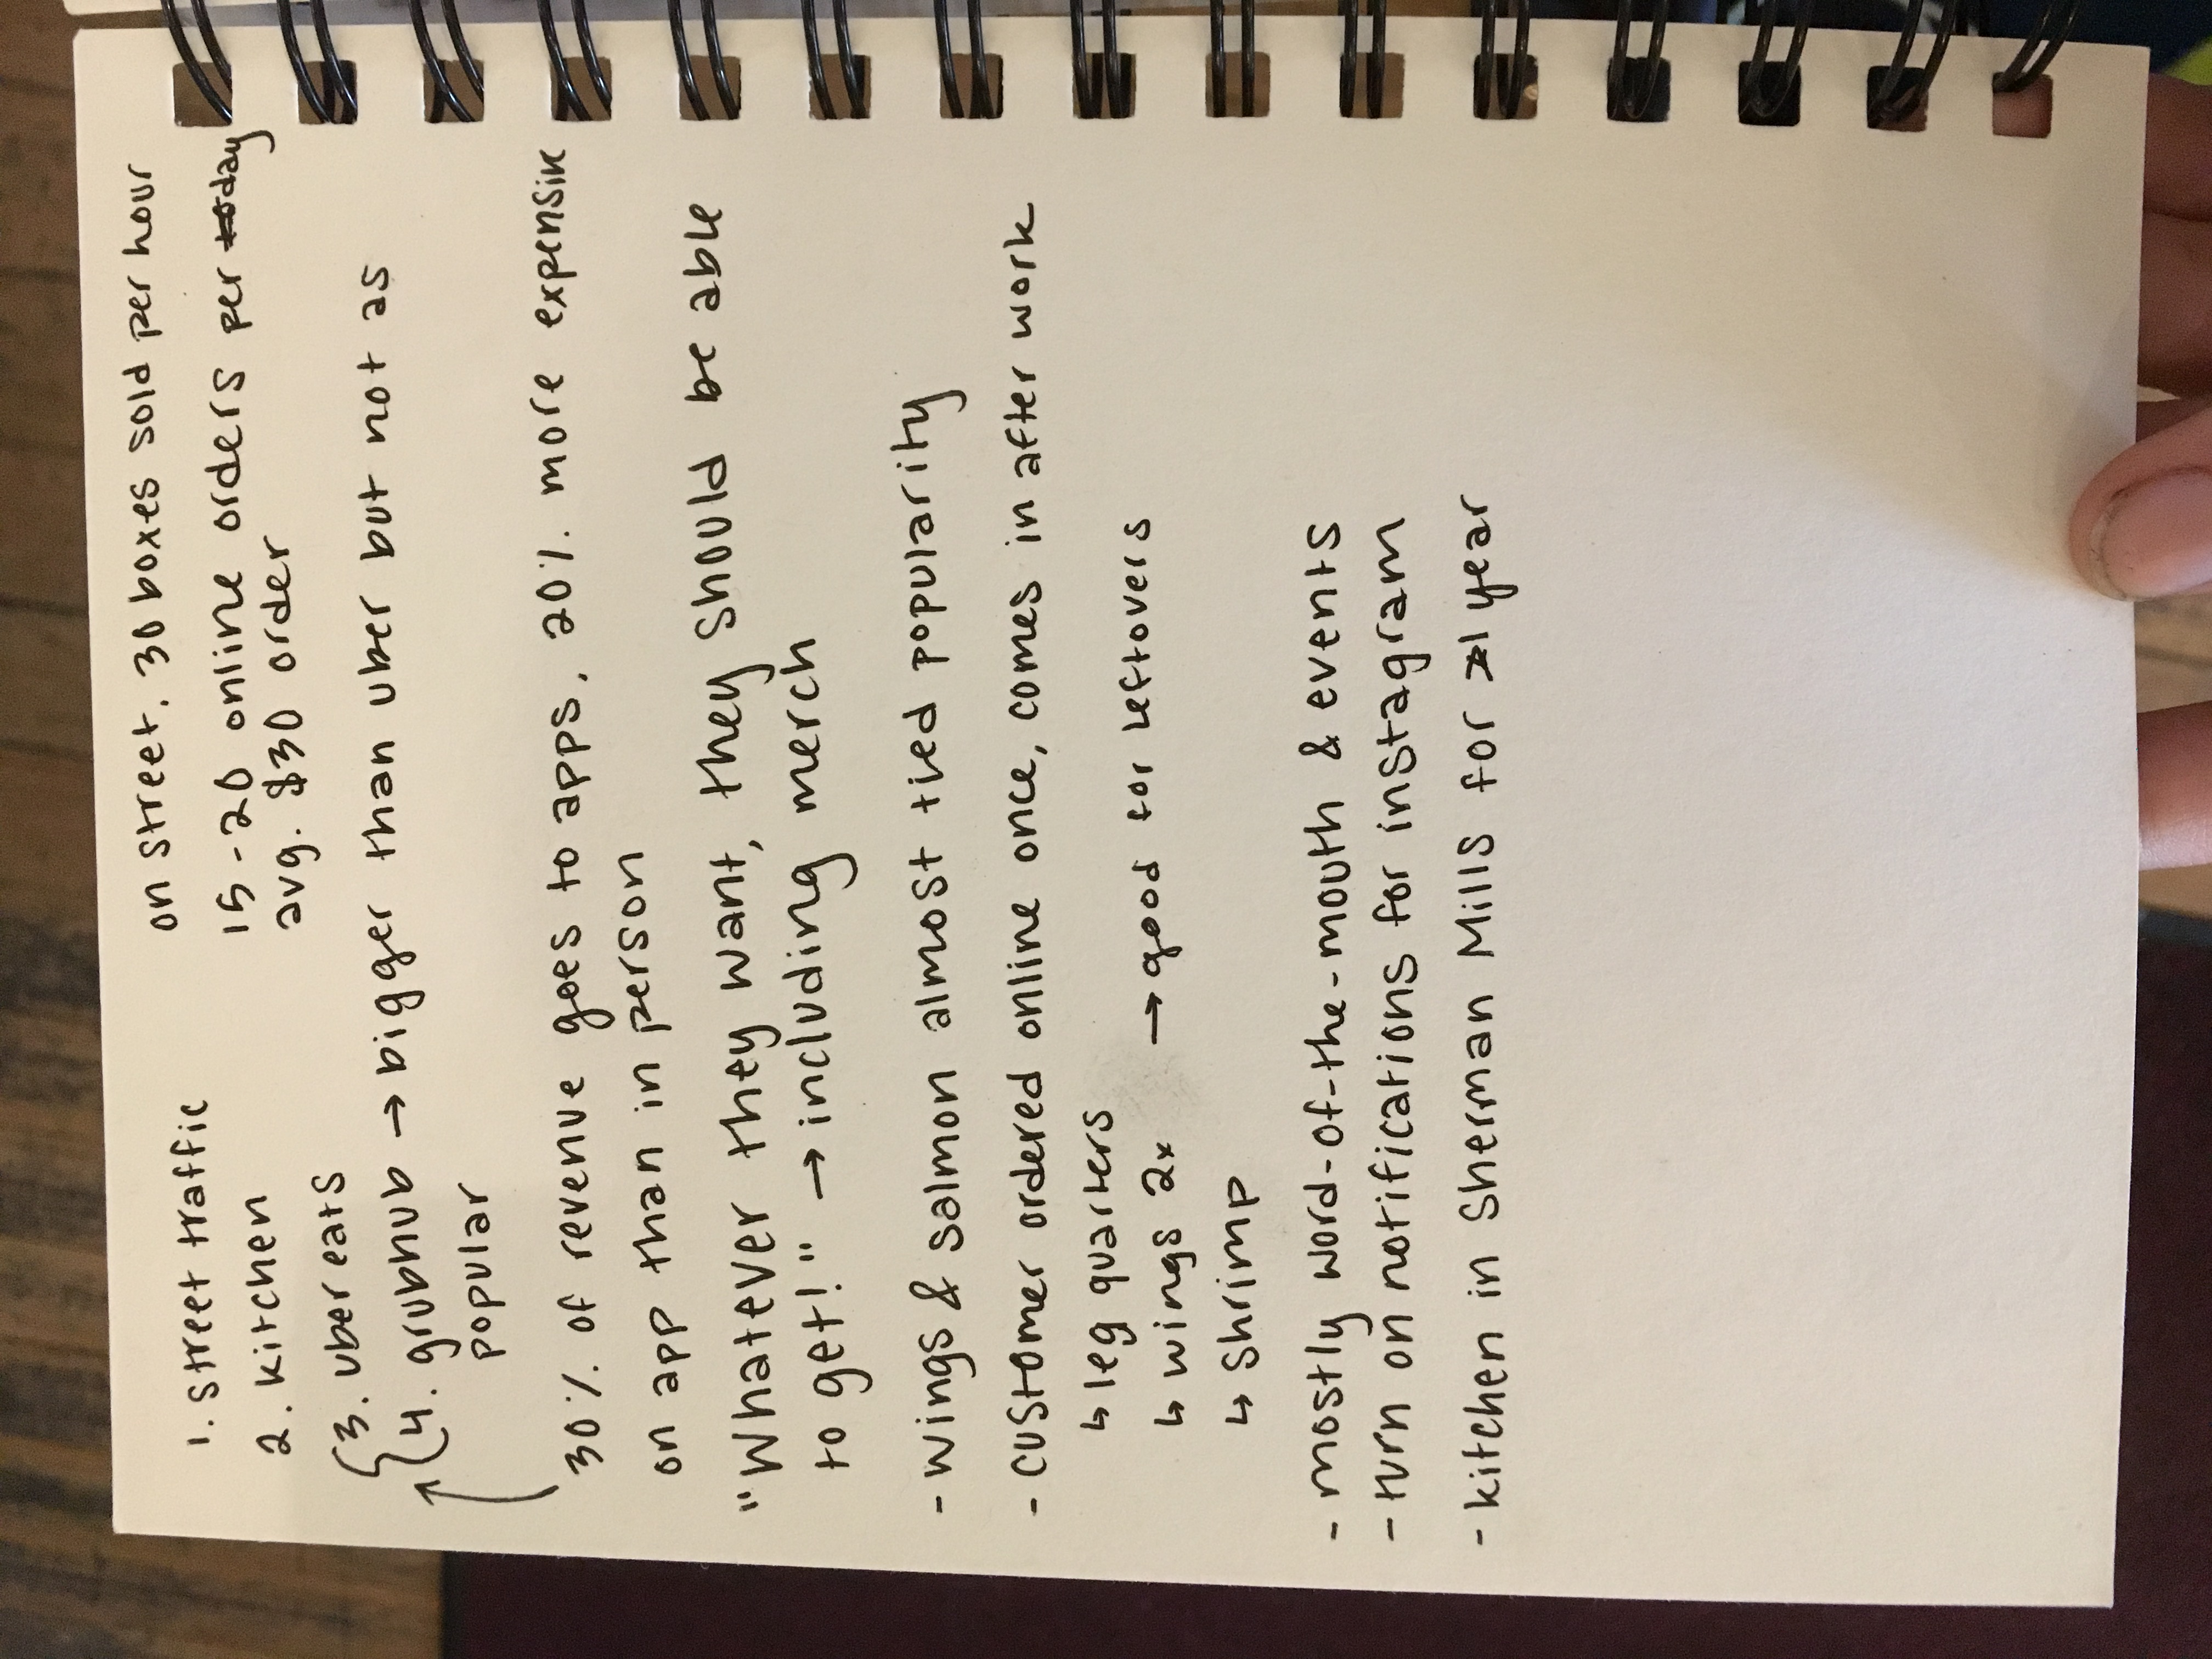 on street, 30 boxes sold per hour
1. street traffic
15-20 online orders per day
avg. $30 order
2. kitchen
3. uber eats
4. grubhub → bigger than uber but not as
popular
30% of revenue goes to apps, 20% more expensive
on app than in person
"Whatever they want, they should be able
to get!" → including merch
- wings & salmon almost tied popularity
- customer ordered online once, comes in after work
↳ leg quarters
↳ wings 2x → good for leftovers
↳ shrimp
- mostly word-of-the-mouth & events
- turn on notifications for instagram
- kitchen in Sherman Mills for 1 year